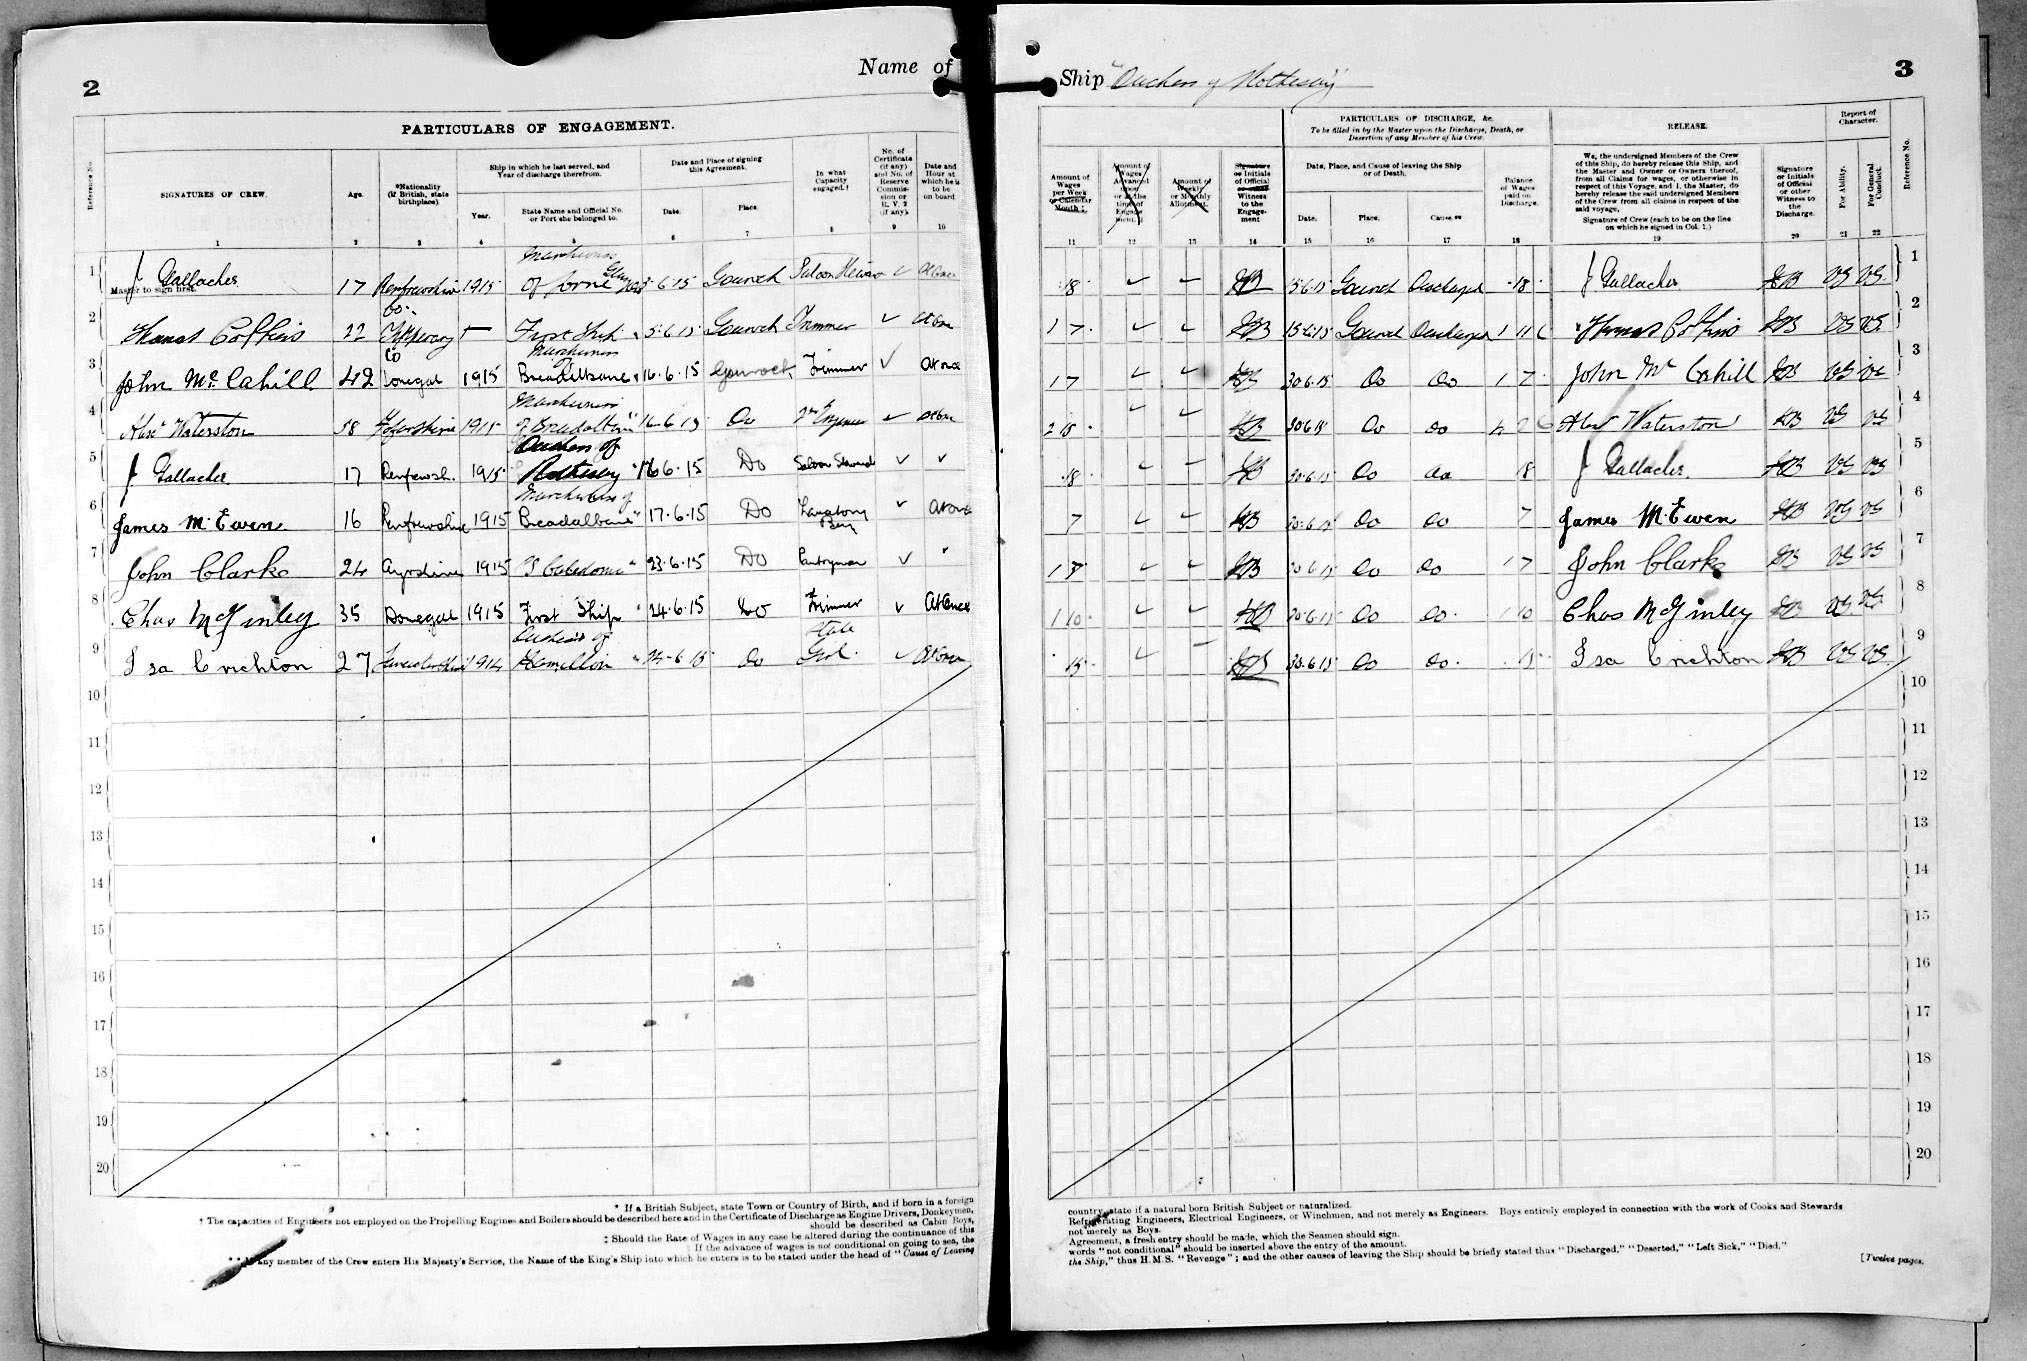 2
Name of
Ship "Duchess of Rothesay"
3
PARTICULARS OF ENGAGEMENT.
Reference No.
SIGNATURES OF CREW.
Age.
*Nationality (if British, state birthplace).
Ship in which he last served, and Year of discharge therefrom.
Year.
State Name and Official No. or Port she belonged to.
Date and Place of signing this Agreement.
Date.
Place.
In what Capacity engaged.†
No. of Certificate (if any) and No. of Reserve Commission or R. V. 2 (if any).
Date and Hour at which he is to be on board
1 2 3 4 5 6 7 8 9 10
Amount of Wages per Week or Calendar Month ‡.
Amount of Wages Advanced upon or in the time of Engagement.
Amount of Weekly or Monthly Allotment.
Signature or Initials of Official Witness to the Engagement
PARTICULARS OF DISCHARGE, &c.
To be filled in by the Master upon the Discharge, Death, or Desertion of any Member of his Crew.
Date, Place, and Cause of leaving the Ship or of Death.
Date.
Place.
Cause.**
Balance of Wages paid on Discharge.
RELEASE.
We, the undersigned Members of the Crew
of this Ship, do hereby release this Ship, and
the Master and Owner or Owners thereof,
from all Claims for wages, or otherwise in
respect of this Voyage, and I, the Master, do
hereby release the said undersigned Members
of the Crew from all claims in respect of the
said voyage,
Signature of Crew (each to be on the line
on which he signed in Col. 1.)
Signature or Initials of Official or other Witness to the Discharge.
Report of Character.
For Ability.
For General Conduct.
Reference No.
11 12 13 14 15 16 17 18 19 20 21 22
Master to sign first.
1 J Gallacher 17 Renfrewshire 1915 Marchioness of Lorne 5·6·15 Gourock
18 15·6·15 Gourock Discharged 18 J Gallacher VG VG 1
2 Thomas 22 Co. Tipperary First Ship 5·6·15 Gourock Trimmer At Once
1 7 15·6·15 Gourock Discharged Thomas VG VG 2
3 John McCahill 42 Co Donegal 1915 Marchioness of Breadalbane 16·6·15 Gourock Trimmer At once
1 7 30·6·15 Do Do 1 7 John McCahill VG VG 3
4 Alexr Waterston 58 1915 Marchioness of Breadalbane 16·6·15 Do At Once
2 15 30·6·15 Do Do Alexr Waterston VG VG 4
5 J Gallacher 17 Renfrewsh. 1915 Duchess of Rothesay 16·6·15 Do Saloon Steward
18 30·6·15 Do Do 18 J Gallacher VG VG 5
6 James McEwen 16 Renfrewshire 1915 Marchioness of Breadalbane 17·6·15 Do Boy At once
7 30·6·15 Do Do 7 James McEwen VG VG 6
7 John Clark 24 Ayrshire 1915 Caledonia 23·6·15 Do Pantryman "
1 7 30·6·15 Do Do 1 7 John Clark VG VG 7
8 Chas McGinley 35 Donegal 1915 First Ship 24·6·15 Do Trimmer At Once
1 10 30·6·15 Do Do 1 10 Chas McGinley VG VG 8
9 Isa Crichton 27 1914 Duchess of Hamilton 24·6·15 Do Girl At Once
15 30·6·15 Do Do 15 Isa Crichton VG VG 9
10 10
11 11
12 12
13 13
14 14
15 15
16 16
17 17
18 18
19 19
20 20
* If a British Subject, state Town or Country of Birth, and if born in a foreign
† The capacities of Engineers not employed on the Propelling Engines and Boilers should be described here and in the Certificate of Discharge as Engine Drivers, Donkeymen,
should be described as Cabin Boys,
‡ Should the Rate of Wages in any case be altered during the continuance of this
|| If the advance of wages is not conditional on going to sea, the
** If any member of the Crew enters His Majesty's Service, the Name of the King's Ship into which he enters is to be stated under the head of "Cause of Leaving
country, state if a natural born British Subject or naturalized.
Refrigerating Engineers, Electrical Engineers, or Winchmen, and not merely as Engineers. Boys entirely employed in connection with the work of Cooks and Stewards
not merely as Boys.
Agreement, a fresh entry should be made, which the Seamen should sign.
words "not conditional" should be inserted above the entry of the amount.
the Ship," thus H.M.S. "Revenge"; and the other causes of leaving the Ship should be briefly stated thus "Discharged," "Deserted," "Left Sick," "Died."
[Twelve pages.